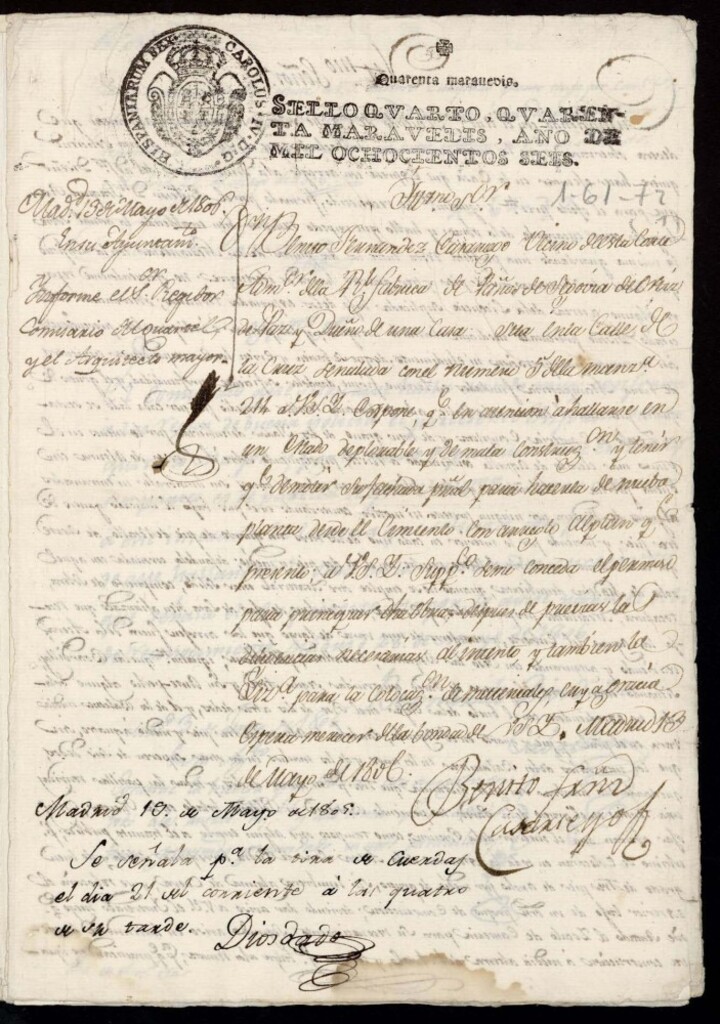 HISPANIARUM REX CAROLUS IV D.G.
5
Quarenta maravedis.
SELLO QVARTO, QVAREN-
TA MARAVEDIS, AÑO DE
MIL OCHOCIENTOS SEIS.
1-61-72
Madd. 13 de Mayo de 1806.
En su Ayuntamto.
Informe el Sor. Regidor
Comisario del quartel
y el Arquitecto mayor.
Yllmo. Sor.
Benito Fernandez Casariego Vecino de esta Corte
de la Rl. fabrica de Paños de Segovia
y Dueño de una Casa Sita en la Calle de
la Cruz señalada con el Numero 5 de la manza.
214 a V.S.Y. Expone, qe. en atencion à hallarse en
un estado deplorable y de mala construczon. y tener
qe. demoler su fachada pral. para hacerla de nueba
planta desde el Cimiento con arreglo al plan qe.
presenta; a V.S.Y. Suppca. se me conceda el permiso
para proseguir dha obra, despues de puestas las
diligencias necesarias al intento y tambien la
para la colocazn. de materiales cuya gracia
espera merecer de la bondad de V.S.Y. Madrid 13
de Mayo de 1806.
Benito Frnz
Casariego
Madrid 19. de Mayo de 1806.
Se señala pa. la tira de cuerdas
el dia 21 del corriente à las quatro
de su tarde. Diosdado